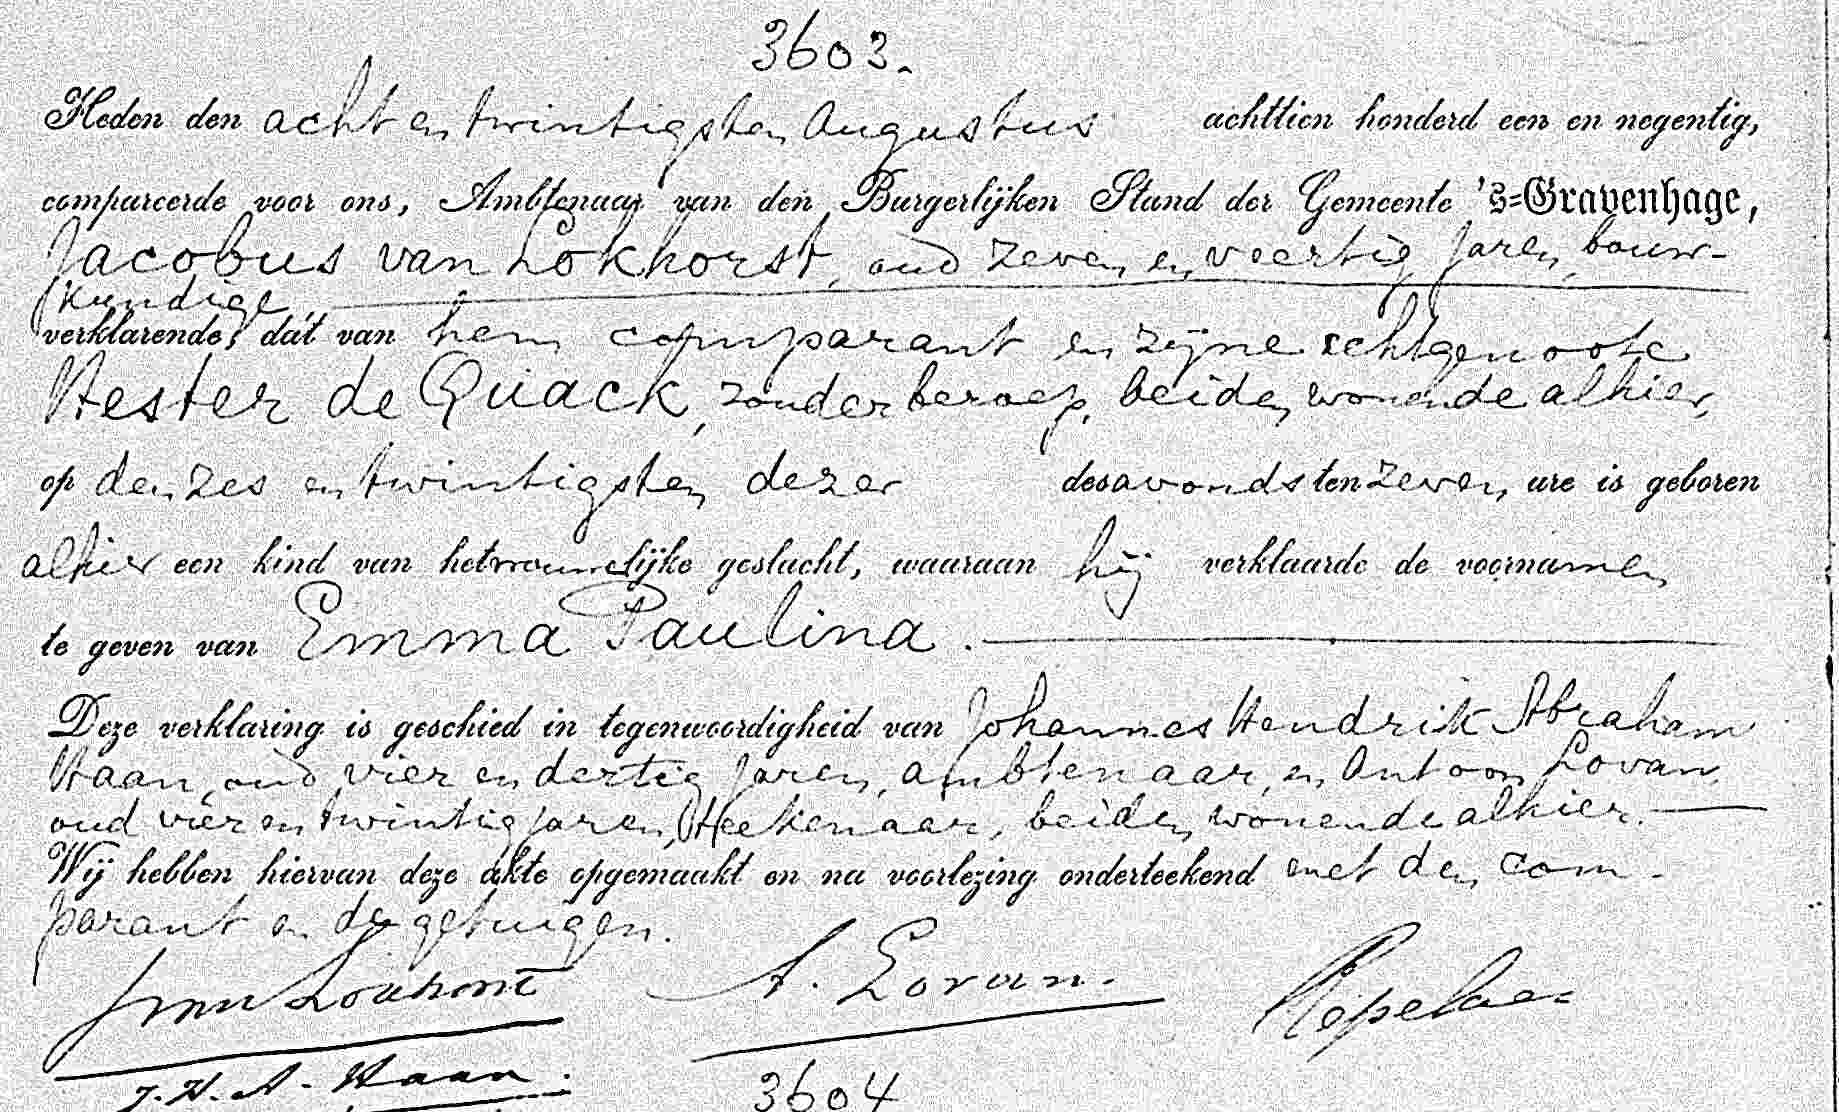 3603.
Heden den acht en twintigsten Augustus achttien honderd een en negentig,
compareerde voor ons, Ambtenaar van den Burgerlijken Stand der Gemeente 's=Gravenhage,
Jacobus van Lokhorst, oud zeven en veertig jaren, bouw-
kundige
verklarende, dat van hem comparant en zijne echtgenoote
Hester de Quack, zonder beroep, beiden wonende alhier,
op den zes en twintigsten dezer des avonds ten zeven ure is geboren
alhier een kind van het vrouwelijke geslacht, waaraan hij verklaarde de voornamen
te geven van Emma Paulina.
Deze verklaring is geschied in tegenwoordigheid van Johannes Hendrik Abraham
Haan, oud vier en dertig jaren, ambtenaar, en Antoon Lovan,
oud vier en twintig jaren, teekenaar, beiden wonende alhier.
Wij hebben hiervan deze akte opgemaakt en na voorlezing onderteekend met den com-
parant en de getuigen.
J van Lokhorst A. Lovan. Repelaer
J. H. A. Haan.
3604